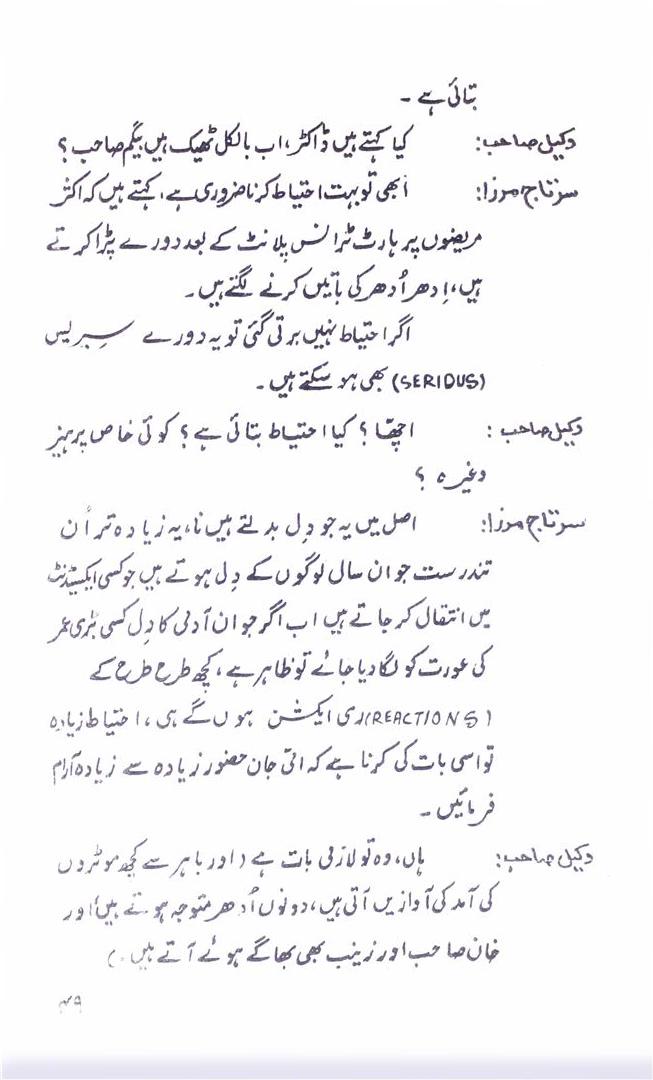 بتائی ہے ۔
وکیل صاحب: کیا کہتے ہیں ڈاکٹر، اب بالکل ٹھیک ہیں بیگم صاحب؟
سرتاج مرزا: ابھی تو بہت احتیاط کرنا ضروری ہے، کہتے ہیں کہ اکثر
مریضوں پر ہارٹ ٹرانس پلانٹ کے بعد دورے پڑا کرتے
ہیں، اِدھر اُدھر کی باتیں کرنے لگتے ہیں۔
اگر احتیاط نہیں برتی گئی تو یہ دورے سیریس
(SERIOUS) بھی ہو سکتے ہیں ۔
وکیل صاحب : اچھّا ؟ کیا احتیاط بتائی ہے ؟ کوئی خاص پرہیز
وغیرہ ؟
سرتاج مرزا: اصل میں یہ جو دِل بدلتے ہیں نا، یہ زیادہ تر اُن
تندرست جوان سال لوگوں کے دِل ہوتے ہیں جو کسی ایکسیڈنٹ
میں انتقال کر جاتے ہیں اب اگر جوان آدمی کا دِل کسی بڑی عمر
کی عورت کو لگا دیا جائے تو ظاہر ہے، کچھ طرح طرح کے
(REACTIONS) ری ایکشن ہوں گے ہی ، احتیاط زیادہ
تو اسی بات کی کرنا ہے کہ امّی جان حضور زیادہ سے زیادہ آرام
فرمائیں ۔
وکیل صاحب: ہاں، وہ تو لازمی بات ہے (اور باہر سے کچھ موٹروں
کی آمد کی آوازیں آتی ہیں، دونوں اُدھر متوجہ ہوتے ہیں اور
خان صاحب اور زینب بھی بھاگے ہوئے آتے ہیں ۔)
۴۹